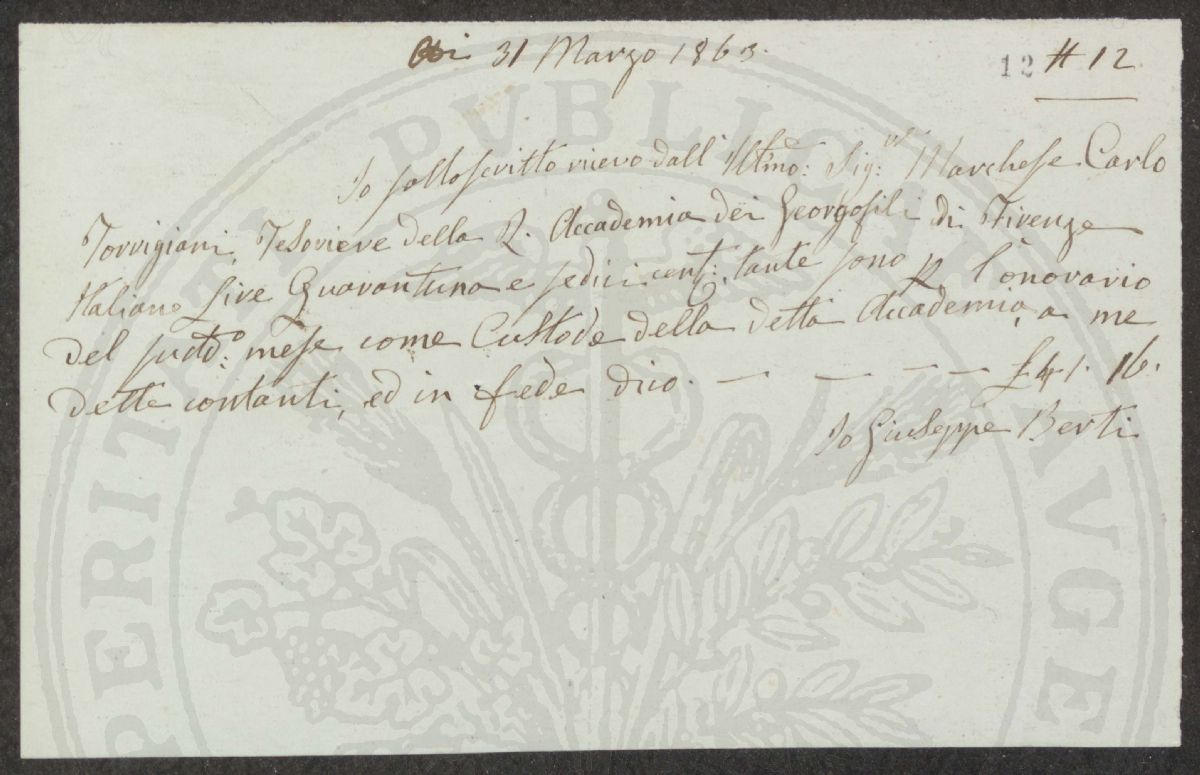 Adi 31 Marzo 1863.
12 # 12
Io sottoscritto ricevo dall' Illmo: Sigr: Marchese Carlo
Torrigiani, Tesoriere della R. Accademia dei Georgofili di Firenze
Italiane Lire Quarantuna e sedici cent: tante sono p l'onorario
del sudd.o mese come Custode della detta Accademia, a me
dette contanti, ed in fede dico. — — — — £ 41. 16.
Io Giuseppe Berti
PERITATEM PVBLICAM AVGE